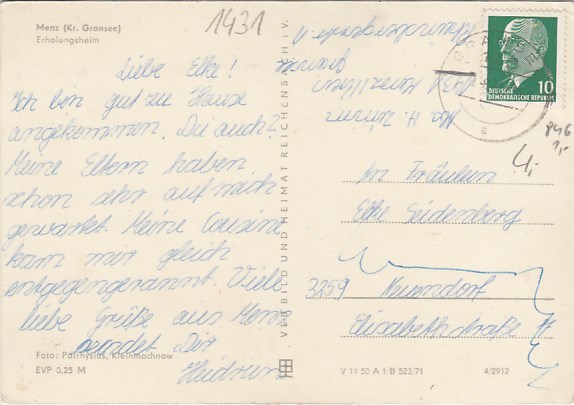 Menz (Kr. Gransee)
Erholungsheim
1431
Liebe Elke!
Ich bin gut zu Hause
angekommen. Du auch?
Meine Eltern haben
schon sehr auf mich
gewartet. Meine Cousine
kam mir gleich
entgegengerannt. Viele
liebe Grüße aus Menz
sendet Dir
Heidrun
Foto: Parthysius, Kleinmachnow
EVP 0,25 M
VEB BILD UND HEIMAT REICHENBACH i. V.
10
DEUTSCHE
DEMOKRATISCHE REPUBLIK
a
846
1,-
4,-
An Fräulein
Elke Seidenberg
3259 Neundorf
Elisabethstraße
V 11 50 A 1/B 523/71
4/2912